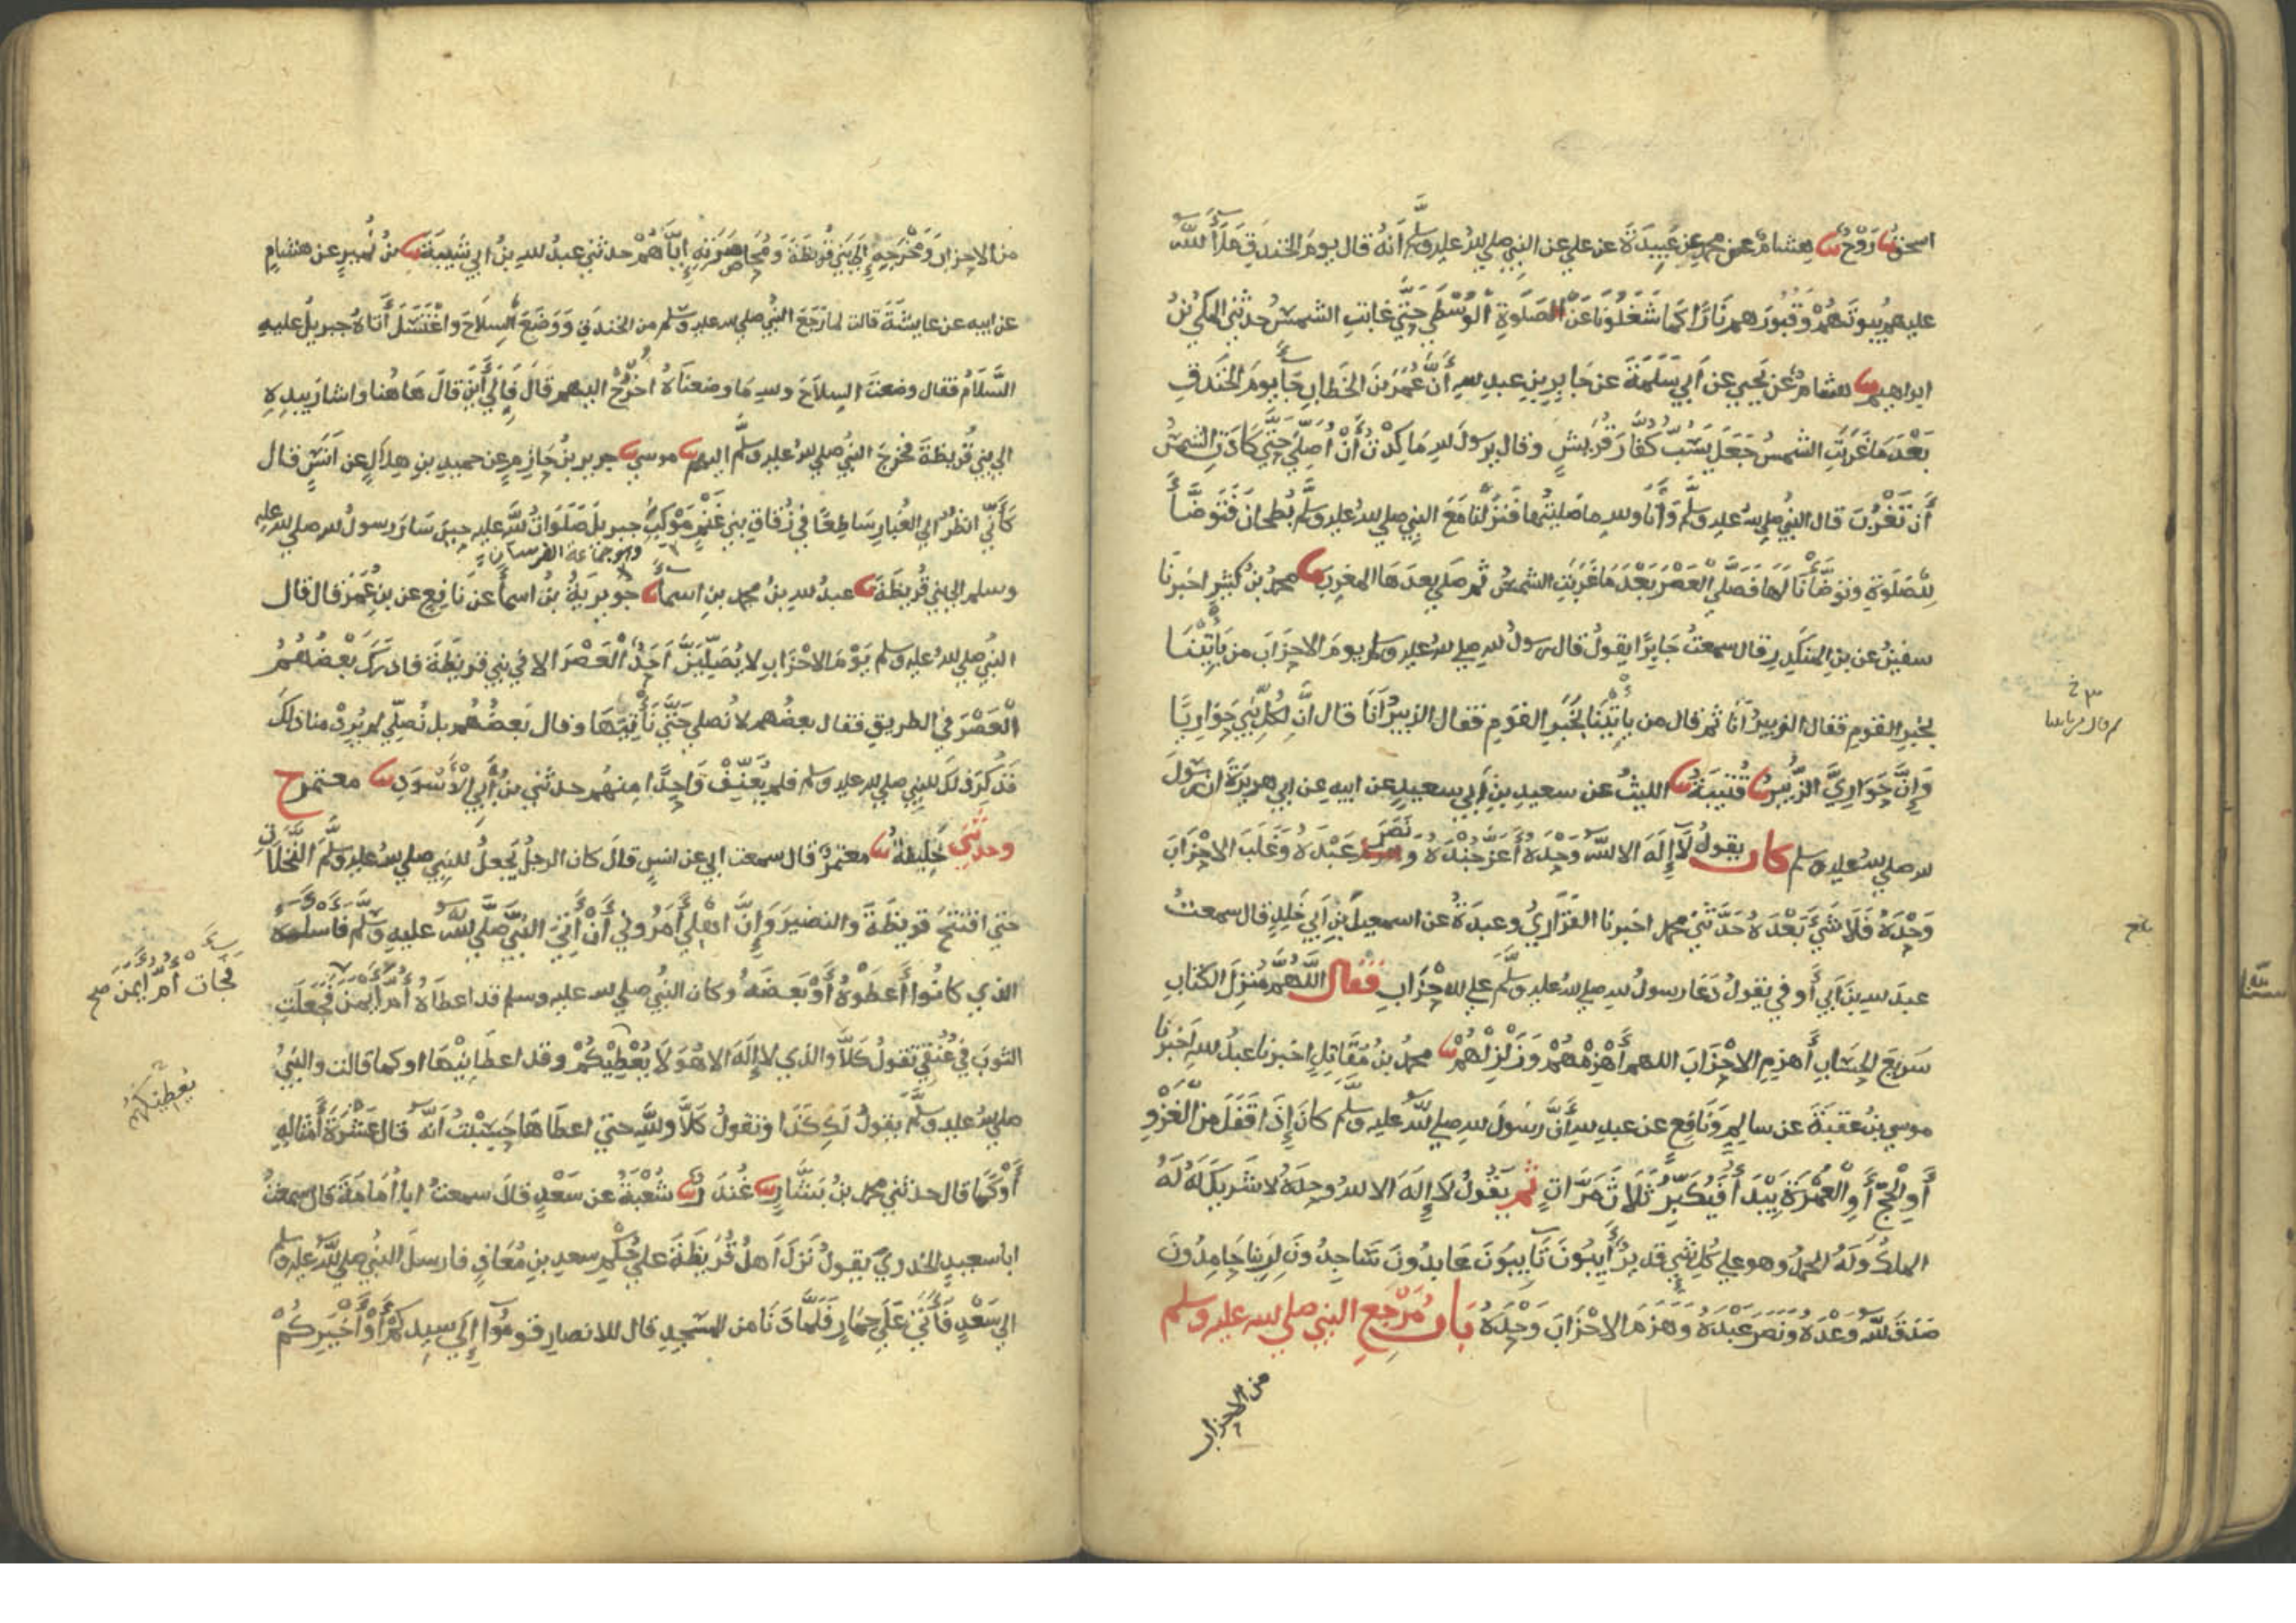 اسحق نا روح نا هشام عن محمد عن عبيدة عن علي عن النبي صلي الله عليه وسلم انه قال يوم الخندق ملأ الله
عليهم بيوتهم وقبورهم نارا كما شغلونا عن الصلوة الوسطي حتي غابت الشمس حدثني المكي بن
ابراهيم نا هشام عن يحيي عن ابي سلمة عن جابر بن عبد الله أن عمر بن الخطاب جاء يوم الخندق
بعد ما غربت الشمس جعل يسب كفار قريش وقال يرسول الله ما كدت أن أصلي حتي كادت الشمس
أن تغرب قال النبي صلي الله عليه وسلم وأنا والله ما صليتها فنزلنا مع النبي صلي الله عليه وسلم بطحان فتوضأ
للصلوة وتوضأنا لها فصلي العصر بعد ما غربت الشمس ثم صلي بعدها المغرب نا محمد بن كثير اخبرنا
سفين عن بن المنكدر قال سمعت جابرا يقول قال رسول الله صلي الله عليه وسلم يوم الاحزاب من يأتينا
بخبر القوم فقال الزبير أنا ثم قال من يأتينا بخبر القوم فقال الزبير أنا قال ان لكل نبي حواريا
وإن حواري الزبير نا قتيبة نا الليث عن سعيد بن أبي سعيد عن ابيه عن ابي هريرة ان رسول
الله صلي الله عليه وسلم كان يقول لا إله الا الله وحده أعز جنده ونصر عبده وغلب الاحزاب
وحده فلا شيء بعده حدثني محمد اخبرنا الفزاري وعبدة عن اسمعيل بن أبي خلد قال سمعت
عبد الله بن أبي أوفي يقول دعا رسول الله صلي الله عليه وسلم علي الاحزاب فقال اللهم منزل الكتاب
سريع الحساب أهزم الاحزاب اللهم أهزمهم وزلزلهم نا محمد بن مقاتل اخبرنا عبد الله اخبرنا
موسي بن عقبة عن سالم ونافع عن عبد الله أن رسول الله صلي الله عليه وسلم كان إذا قفل من الغزو
أو الحج أو العمرة يبدأ فيكبر ثلاث مرات ثم يقول لا إله الا الله وحده لا شريك له له
الملك وله الحمد وهو علي كل شي قدير أيبون تايبون عابدون ساجدون لربنا حامدون
صدق الله وعده ونصر عبده وهزم الاحزاب وحده باب مرجع النبي صلي الله عليه وسلم
من الاحزاب
بلغ
من الاحزاب ومخرجه إلي بني قريظة ومحاصرته إياهم حدثني عبد الله بن ابي شيبة نا بن نمير عن هشام
عن ابيه عن عايشة قالت لما رجع النبي صلي الله عليه وسلم من الخندق ووضع السلاح واغتسل أتاه جبريل عليه
السلام فقال وضعت السلاح والله ما وضعناه اخرج اليهم قال فإلي أين قال هاهنا واشار بيده
الي بني قريظة فخرج النبي صلي الله عليه وسلم اليهم نا موسي نا جرير بن حازم عن حميد بن هلال عن أنس قال
كأني انظر الي الغبار ساطعا في زقاق بني غنم موكب جبريل صلوات الله عليه حين سار رسول الله صلي الله عليه
وهو جماعة الفرسان
وسلم الي بني قريظة نا عبد الله بن محمد بن اسماء نا جويرية بن اسماء عن نافع عن بن عمر قال قال
النبي صلي الله عليه وسلم يوم الاحزاب لا يصلين أحد العصر الا في بني قريظة فادرك بعضهم
العصر في الطريق فقال بعضهم لا نصلي حتي نأتيها وقال بعضهم بل نصلي لم يرد منا ذلك
فذكر ذلك للنبي صلي الله عليه وسلم فلم يعنف واحدا منهم حدثني بن أبي الأسود نا معتمر ح
وحدثني خليفة نا معتمر قال سمعت ابي عن انس قال كان الرجل يجعل للنبي صلي الله عليه وسلم النخلات
حتي افتتح قريظة والنضير وإن اهلي أمروني أن أتي النبي صلي الله عليه وسلم فاسأله
الذي كانوا أعطوه أو بعضه وكان النبي صلي الله عليه وسلم قد اعطاه أم أيمن فجعلت
فجات أم أيمن صح
الثوب في عنقي تقول كلا والذي لا إله الا هو لا يعطيكم وقد اعطانيها او كما قالت والنبي
يعطيكهم
صلي الله عليه وسلم يقول لك كذا وتقول كلا والله حتي اعطاها حسبت أنه قال عشرة أمثاله
أو كما قال حدثني محمد بن بشار نا غندر نا شعبة عن سعد قال سمعت ابا أمامة قال سمعت
ابا سعيد الخدري يقول نزل أهل قريظة علي حكم سعد بن معاذ فارسل النبي صلي الله عليه وسلم
الي سعد فأتي علي حمار فلما دنا من المسجد قال للانصار قوموا إلي سيدكم أو أخيركم